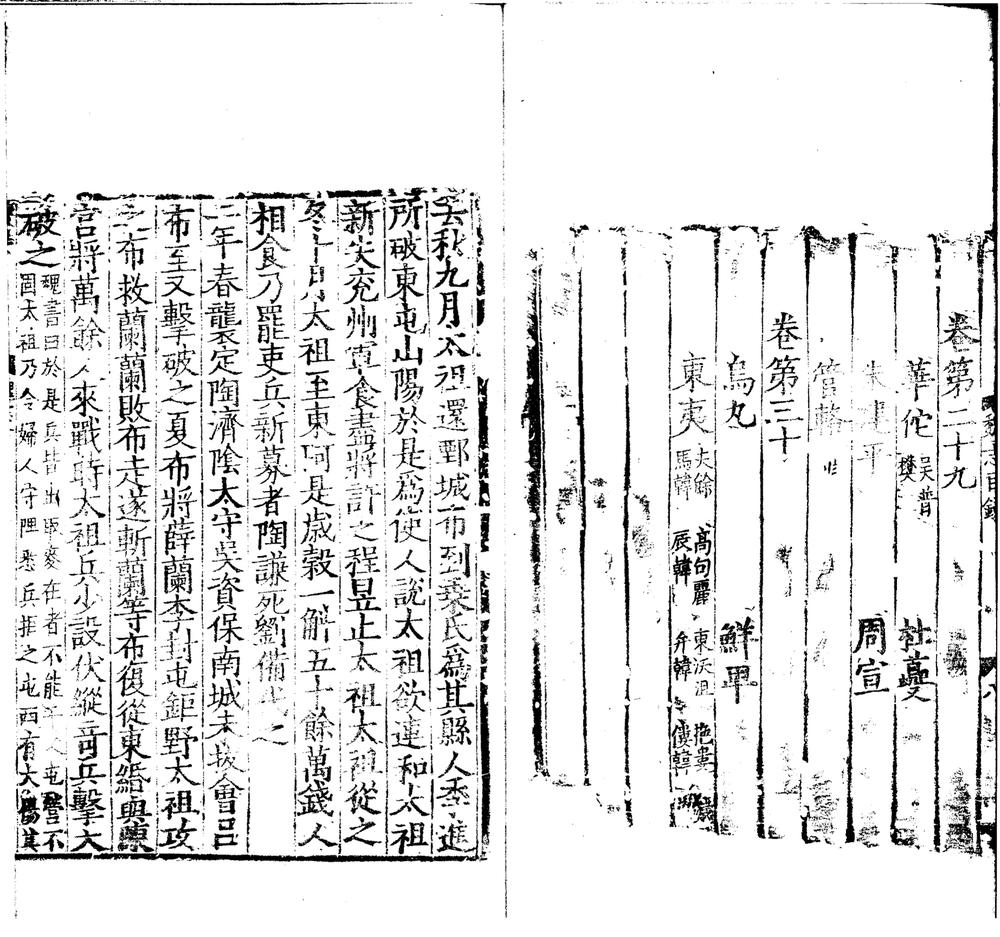 卷第二十九
華佗 吳普 樊 杜夔
朱建平 周宣
管輅
卷第三十
烏丸 鮮卑
東夷 夫餘 高句麗 東沃沮 挹婁 濊 馬韓 辰韓 弁韓
魏志目錄 八
去秋九月太祖還鄄城布到乗氏爲其縣人李進
所破東屯山陽於是爲使人說太祖欲連和太祖
新失兖州軍食盡將許之程昱止太祖太祖從之
冬十月太祖至東阿是歳穀一斛五十餘萬錢人
相食乃罷吏兵新募者陶謙死劉備代之
二年春襲定陶濟陰太守吳資保南城未拔會吕
布至又擊破之夏布將薛蘭李封屯鉅野太祖攻
之布救蘭蘭敗布走遂斬蘭等布復從東緡與陳
宫將萬餘人來戰時太祖兵少設伏縱竒兵擊大
破之 魏書曰於是兵皆出取麥在者不能千人屯營不
固太祖乃令婦人守陴悉兵拒之屯西有大隄其